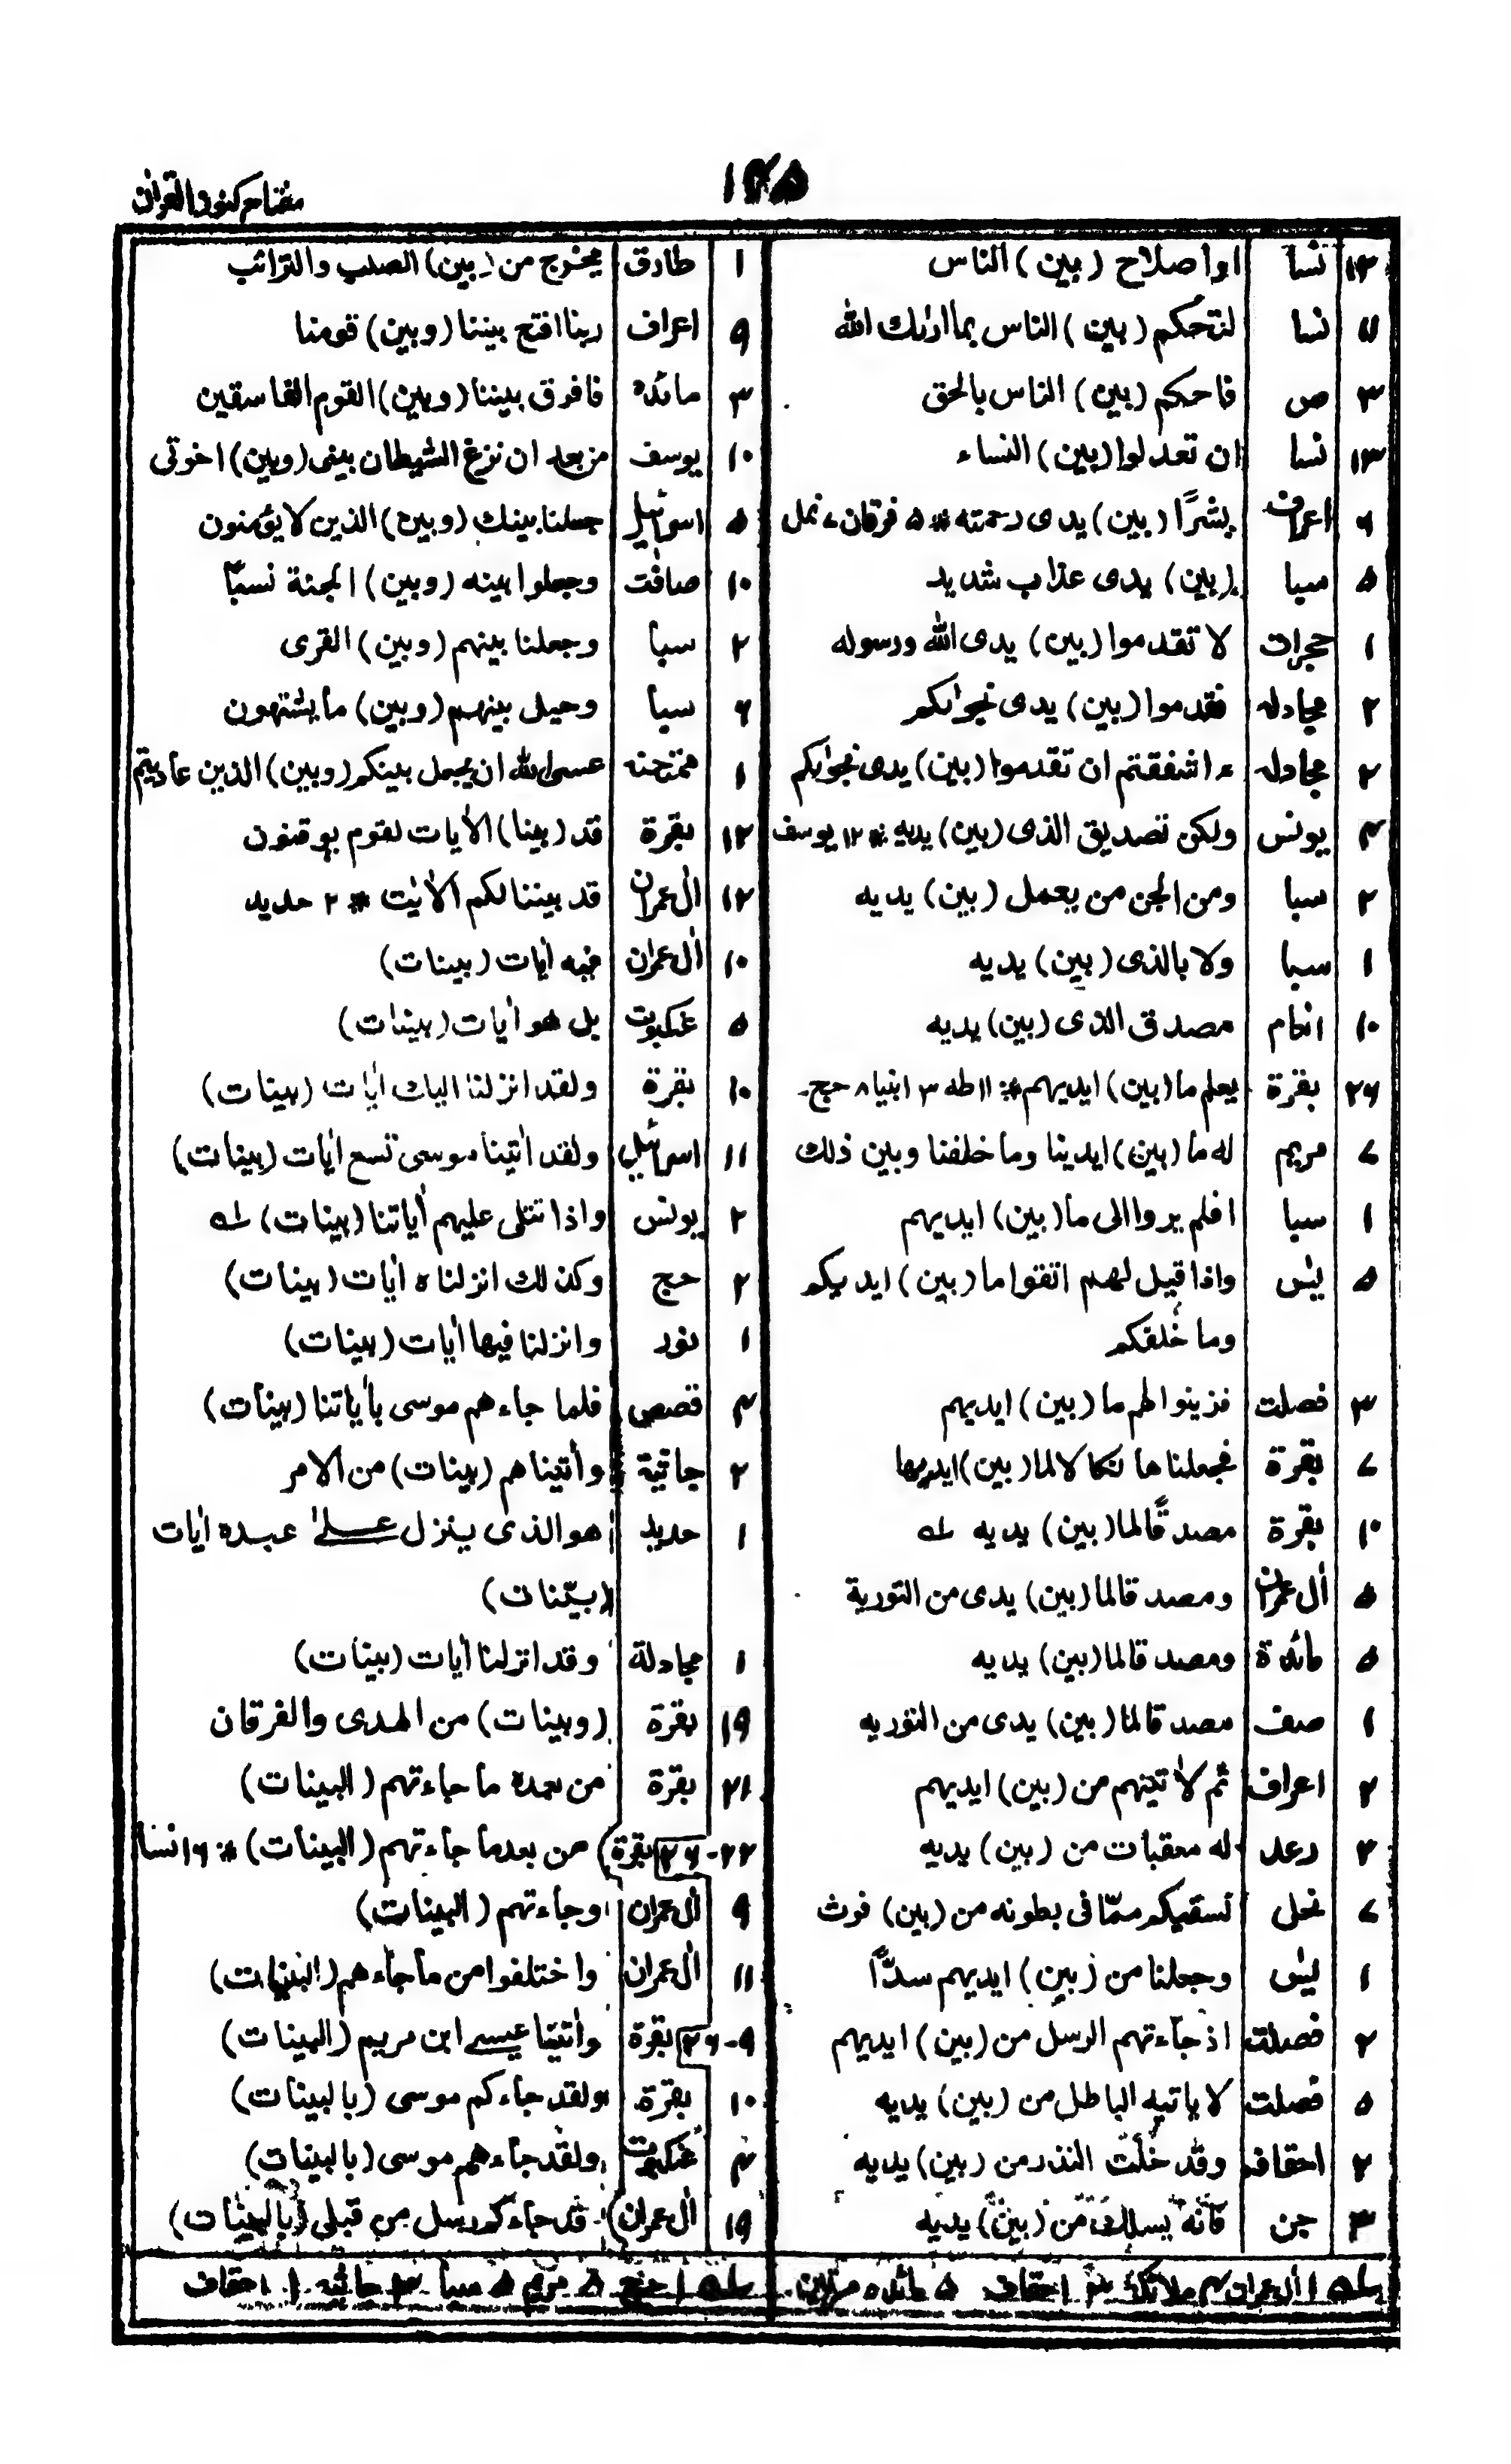 مفتاح كنوز القرآن
۱۲۵
۱۳ نسا اواصلاح (بين) الناس
نسا لتحكم (بين) الناس بما ارٰىك الله
۳ ص فاحكم (بين) الناس بالحق
نسا ان تعدلوا (بين) النساء
اعراف بشرًا (بين) يدى رحمته * ۵ فرقان ، نمل
۵ سبا (بين) يدى عذاب شديد
۱ حجرات لا تقدموا (بين) يدى الله ورسوله
۲ مجادله فقدموا (بين) يدى نجوٰىكم
۲ مجادله ء اشفقتم ان تقدموا (بين) يدى نجوٰىكم
۴ يونس ولكن تصديق الذى (بين) يديه * ۱۲ يوسف
۲ سبا ومن الجن من يعمل (بين) يديه
۱ سبا ولا بالذى (بين) يديه
۱۰ انعام مصدق الذى (بين) يديه
بقرة يعلم ما (بين) ايديهم * ۱۱ طه ۳ انبيا ۸ حج
۷ مريم له ما (بين) ايدينا وما خلفنا وبين ذلك
۱ سبا افلم يروا الى ما (بين) ايديهم
۵ يٰس واذا قيل لهم اتقوا ما (بين) ايديكم
وما خلفكم
۳ فصلت فزينوا لهم ما (بين) ايديهم
۷ بقرة فجعلناها نكالا لما (بين) ايديها
۱۰ بقرة مصدقًا لما (بين) يديه له
۵ اٰل عمران ومصدقا لما (بين) يدى من التورية
۵ مائدة ومصدقا لما (بين) يديه
۱ صف مصدقا لما (بين) يدى من التوريه
۲ اعراف ثم لاٰتينهم من (بين) ايديهم
۲ رعد له معقبات من (بين) يديه
۷ نحل نسقيكم ممّا فى بطونه من (بين) فرث
۱ يٰس وجعلنا من (بين) ايديهم سدًّا
۲ فصلت اذ جاءتهم الرسل من (بين) ايديهم
۵ فصلت لا ياتيه الباطل من (بين) يديه
۲ احقاف وقد خلت النذر من (بين) يديه
جن فانه يسلك من (بين) يديه
۱ طارق يخرج من (بين) الصلب والترائب
۹ اعراف ربنا افتح بيننا (وبين) قومنا
۳ مائده فافرق بيننا (وبين) القوم الفاسقين
۱۰ يوسف من بعد ان نزغ الشيطان بينى (وبين) اخوتى
۵ اسرائيل جعلنا بينك (وبين) الذين لا يؤمنون
۱۰ صافٰت وجعلوا بينه (وبين) الجنة نسبًا
۲ سبا وجعلنا بينهم (وبين) القرى
۶ سبا وحيل بينهم (وبين) ما يشتهون
۱ ممتحنه عسى الله ان يجعل بينكم (وبين) الذين عاديتم
۱۲ بقرة قد (بينا) الاٰيات لقوم يوقنون
۱۲ اٰل عمران قد بيننا لكم الاٰيٰت * ۲ حديد
۱۰ اٰل عمران فيه اٰيات (بينات)
۵ عنكبوت بل هو اٰيات (بينات)
۱۰ بقرة ولقد انزلنا اليك اٰيات (بينات)
۱۱ اسرائيل ولقد اٰتينا موسى تسع اٰيات (بينات)
۲ يونس واذا تتلى عليهم اٰياتنا (بينات) له
۲ حج وكذلك انزلناه اٰيات (بينات)
۱ نور وانزلنا فيها اٰيات (بينات)
۴ قصص فلما جاءهم موسى باٰياتنا (بينات)
۲ جاثية واٰتيناهم (بينات) من الامر
۱ حديد هو الذى ينزل علىٰ عبده اٰيات
(بيّنات)
۱ مجادلة وقد انزلنا اٰيات (بينات)
۱۹ بقرة (وبينات) من الهدى والفرقان
۲۱ بقرة من بعده ما جاءتهم (البينات)
۲۲-۲۶ بقرة من بعد ما جاءتهم (البينات) * ۱۶ نسا
۹ اٰل عمران وجاءتهم (البينات)
۱۱ اٰل عمران واختلفوا من ما جاءهم (البينات)
۹-۲۶ بقرة واٰتينا عيسے ابن مريم (البينات)
۱۰ بقرة ولقد جاءكم موسى (بالبينات)
۴ عنكبوت ولقد جاءهم موسى (بالبينات)
۱۹ اٰل عمران قد جاءكم رسل من قبلى (بالبينات)
له ۱ اٰل عمران ۴ ملائكة احقاف ۵ مائده مرتين
له ۱ حج ۵ مريم ۵ سبا ۳ جاثيه ۱ احقاف